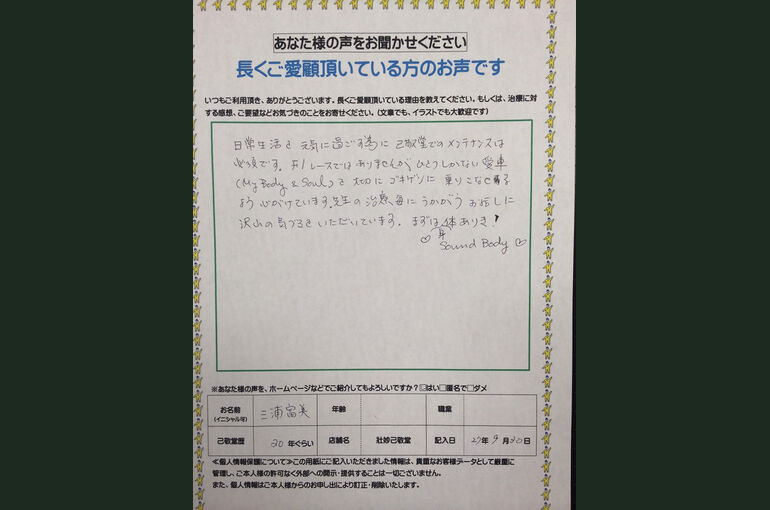 あなた様の声をお聞かせください
長くご愛顧頂いている方のお声です
いつもご利用頂き、ありがとうございます。長くご愛顧頂いている理由を教えてください。もしくは、治療に対
する感想、ご要望などお気づきのことをお寄せください。(文章でも、イラストでも大歓迎です)
日常生活を元気に過ごす為に己敬堂でのメンテナンスは
必須です。F1レースではありませんが、ひとつしかない愛車
(My Body & Soul)を大切にゴキゲンに乗りこなせる
よう心がけています。先生の治療毎にうかがうお話しに
沢山の気づきをいただいています。まずは身体ありき!
♡ Sound Body ♡
※あなた様の声を、ホームページなどでご紹介してもよろしいですか?☑はい□匿名で□ダメ
お名前 三浦富美 年齢 職業
(イニシャル可)
己敬堂歴 20年ぐらい 店舗名 壮妙己敬堂 記入日 27年9月20日
≪個人情報保護について≫この用紙にご記入いただきました情報は、貴重なお客様データとして厳重に
管理し、ご本人様の許可なく外部への開示・提供することは一切ございません。
また、個人情報はご本人様からのお申し出により訂正・削除いたします。